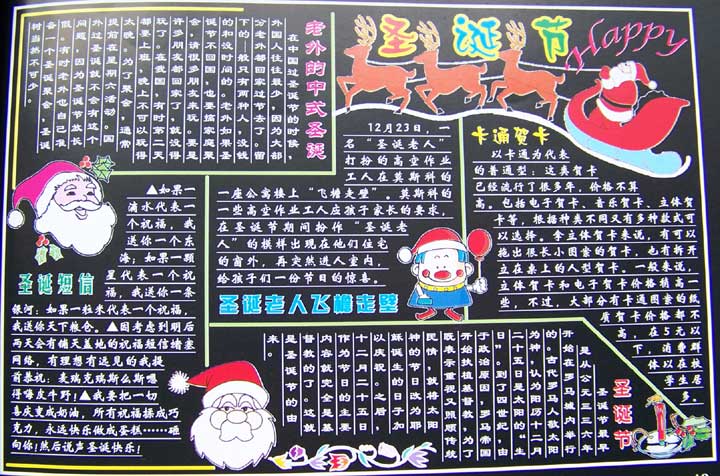 圣诞节
Happy
老外的中式圣诞
在中国过圣诞节的时候，
外国人往往很少，因为大部
分老外都回家过节去了。留
下的一般只有两种人，没钱
的和没时间的。老外如果圣
诞节不回国，也要搞家庭聚
会，请很多朋友来玩。要是
许多朋友都回家了，就没得
玩了。在我国，有时第二天
都要上班，晚上不可以玩得
太晚。为了聚会，通常
提前在星期六活动。国
外过圣诞就不会有这个
问题，因为圣诞节放长
假。有时老外也自己准
备一个圣诞聚会，圣诞
树当然不可少。
12月23日，一
名“圣诞老人”
打扮的高空作业
工人在莫斯科的
一座公寓楼上“飞檐走壁”。莫斯科的
一些高空作业工人应孩子家长的要求，
在圣诞节期间扮作“圣诞老
人”的模样出现在他们住宅
的窗外，再突然进入室内，
给孩子们一份节日的惊喜。
圣诞老人飞檐走壁
卡通贺卡
以卡通为代表
的普通型：这类贺卡
已经流行了很多年，价格不算
高。包括电子贺卡、音乐贺卡、立体贺
卡等，根据种类不同又有多种款式可
以选择。拿立体贺卡来说，有可以
拖出很长小图案的贺卡，也有拆开
立在桌上的人型贺卡。一般来说，
立体贺卡和电子贺卡价格稍高一
些，不过，大部分有卡通图案的纸
质贺卡价格都不
高，在5元以
下，消费群
体以在校
学生居
多。
圣诞短信
▲如果一
滴水代表一
个祝福，我
送你一个东
海；如果一颗
星代表一个祝
福，我送你一条
银河；如果一粒米代表一个祝福，
我送你天下粮仓。▲因考虑到明后
两天会有铺天盖地的祝福短信堵塞
网络，有理想有远见的我提
前恭祝：麦瑞克瑞斯么斯嘿
得嘚皮牛野；▲我要把一切
喜庆变成奶油，所有祝福揉成巧
克力，永远快乐做成蛋糕……砸
向你！然后说声圣诞快乐！
圣诞节
圣诞节最早
是从公元三三六年
开始在罗马城内举行
的。古代罗马人敬太阳
为神，认为阳历十二月
二十五日是太阳的“生
日”。到了四世纪，由
于政治原因，罗马帝国
开始扶植基督教，为了
既表示重视又照顾传统
民情，就将太阳
神的节日改为耶
稣诞生的日子加
以庆祝。之后，
十二月二十五日
作为节日的主要
内容就完全是基
督教的了。这就
是圣诞节的由
来。